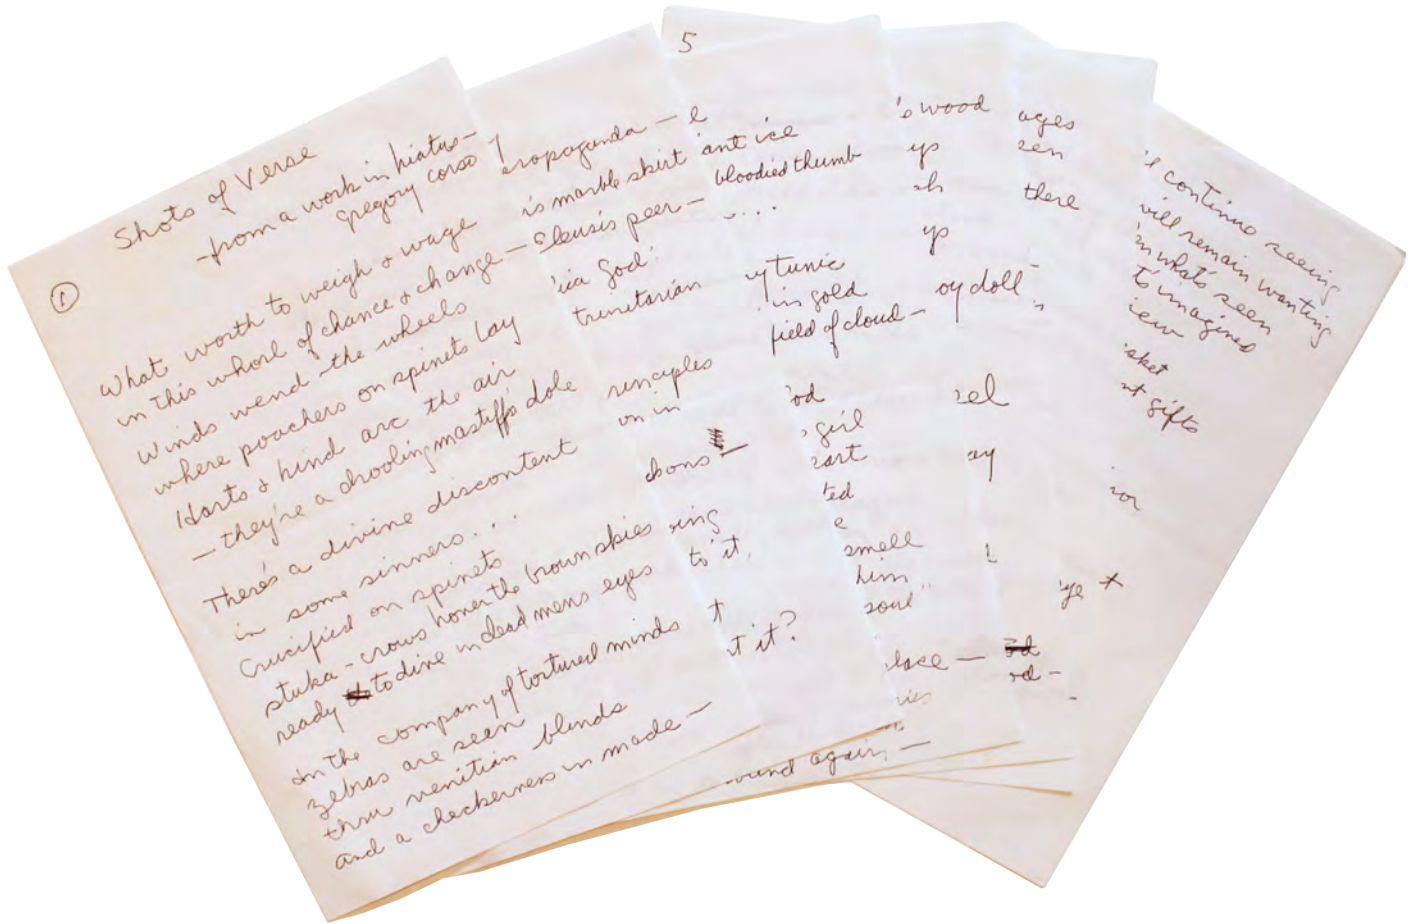 Shots of Verse
-from a work in hiatus-
gregory corso
①
What worth to weigh & wage
in this whorl of chance & change -
Winds wend the wheels
where poachers on spinets lay
Harts & hind arc the air
- they're a drooling mastiff's dole
There's a divine discontent
in some sinners...
Crucified on spinets
stuka-crows hover the brown skies
ready to dive in dead mens eyes
In the company of tortured minds
zebras are seen
thru venitian blinds
and a checkerness in made -
ropaganda -
is marble skirt
eleusis peer -
ica God:
trinitarian
rinciples
on in
chons -
ring
to it,
t
t it?
5
l
ant ice
bloodied thumb
....
y tunic
in gold
field of cloud -
od
girl
eart
ted
e
smell
him
soul"
lace -
ries
ound again, -
's wood
ys
ch
ys
oy doll
zel
ay
rd -
ages
een
there
s continue seeing
will remain wanting
in what's seen
to imagined
iew
sket
nt gifts
ior
ye *